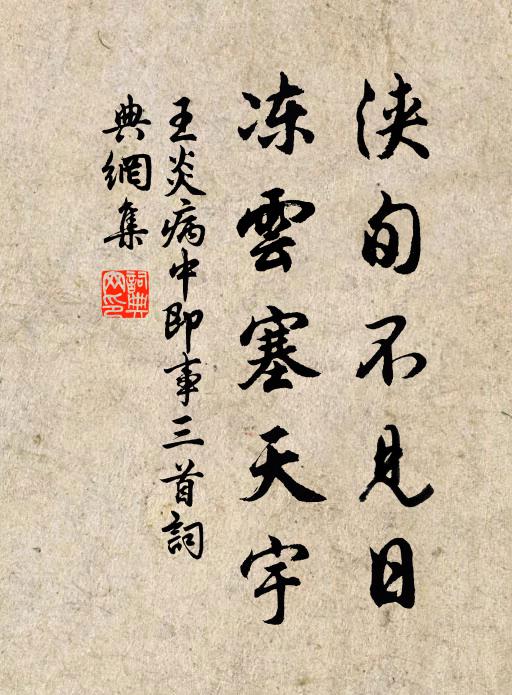 浃旬不见日
冻雲塞天宇
王炎病中即事三首詞
典網集
詞典
网印